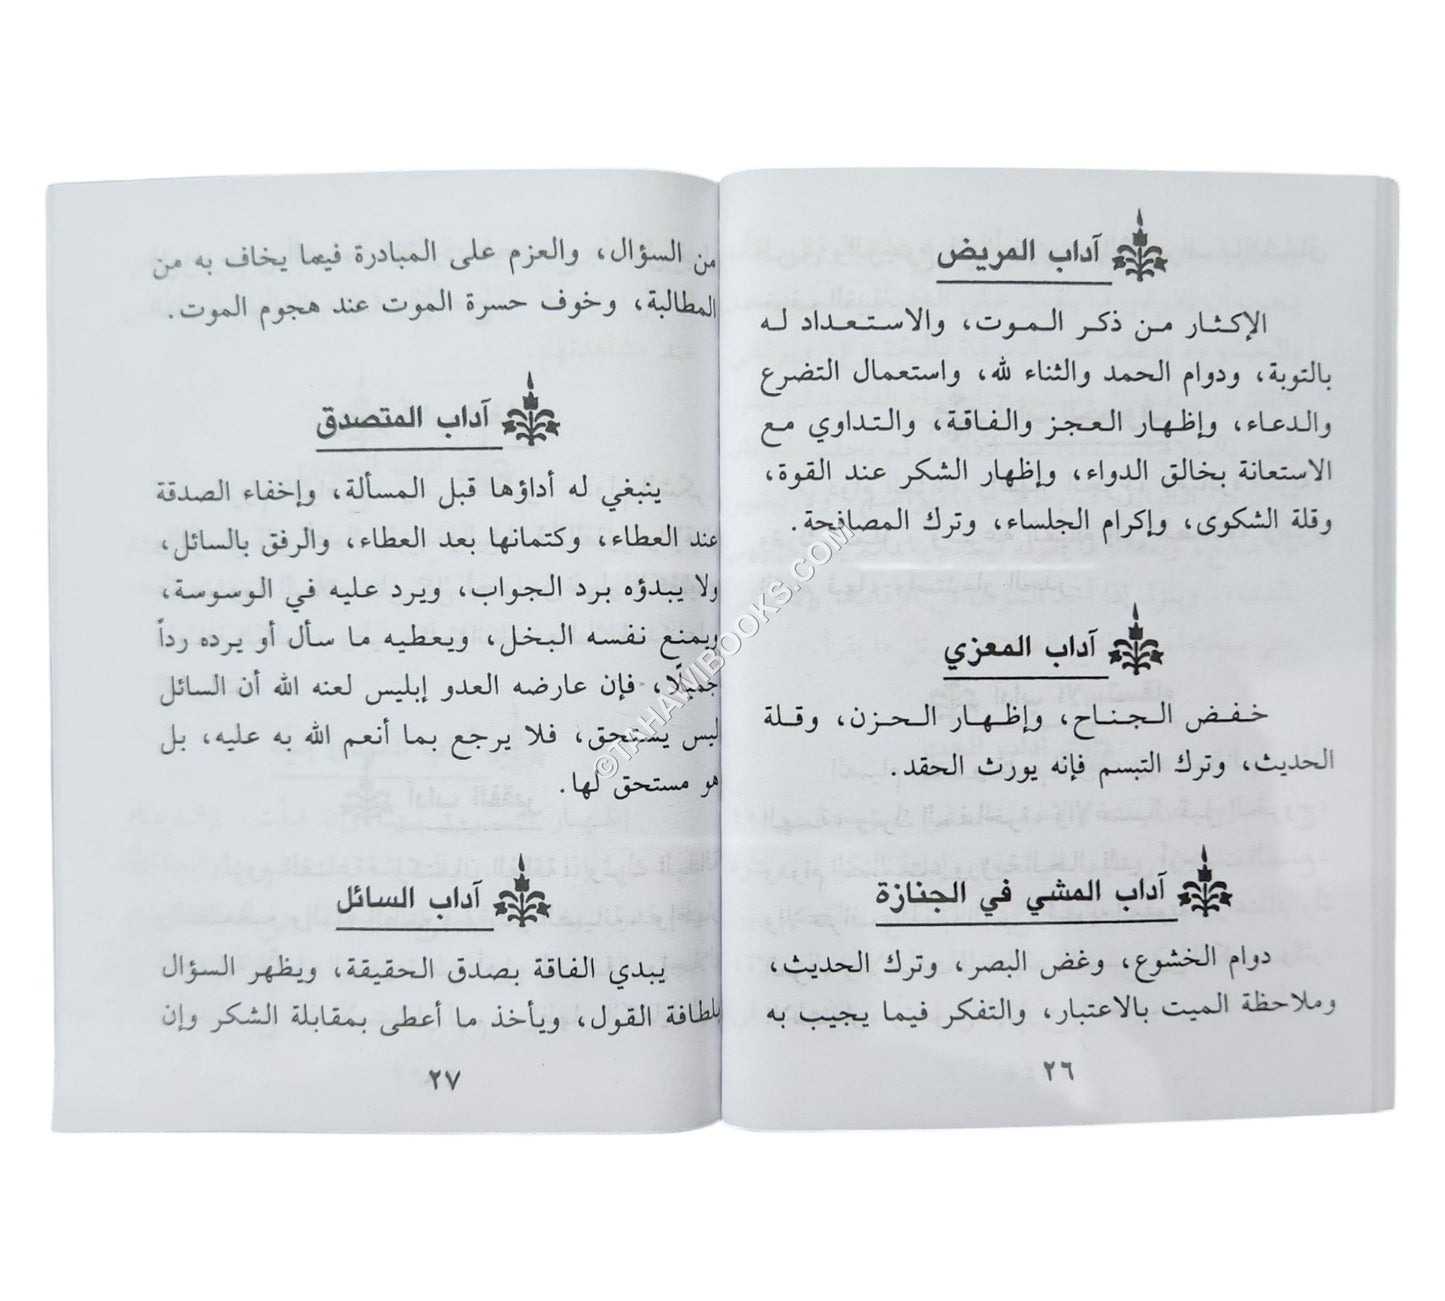 آداب المريض
الإكثار من ذكر الموت، والاستعداد له
بالتوبة، ودوام الحمد والثناء لله، واستعمال التضرع
والدعاء، وإظهار العجز والفاقة، والتداوي مع
الاستعانة بخالق الدواء، وإظهار الشكر عند القوة،
وقلة الشكوى، وإكرام الجلساء، وترك المصافحة.
آداب المعزي
خفض الجناح، وإظهار الحزن، وقلة
الحديث، وترك التبسم فإنه يورث الحقد.
آداب المشي في الجنازة
دوام الخشوع، وغض البصر، وترك الحديث،
وملاحظة الميت بالاعتبار، والتفكر فيما يجيب به
٢٦
من السؤال، والعزم على المبادرة فيما يخاف به من
المطالبة، وخوف حسرة الموت عند هجوم الموت.
آداب المتصدق
ينبغي له أداؤها قبل المسألة، وإخفاء الصدقة
عند العطاء، وكتمانها بعد العطاء، والرفق بالسائل،
ولا يبدؤه برد الجواب، ويرد عليه في الوسوسة،
ويمنع نفسه البخل، ويعطيه ما سأل أو يرده رداً
جميلًا، فإن عارضه العدو إبليس لعنه الله أن السائل
ليس يستحق، فلا يرجع بما أنعم الله به عليه، بل
هو مستحق لها.
آداب السائل
يبدي الفاقة بصدق الحقيقة، ويظهر السؤال
بلطافة القول، ويأخذ ما أعطى بمقابلة الشكر وإن
٢٧
©TAHAWIBOOKS.COM